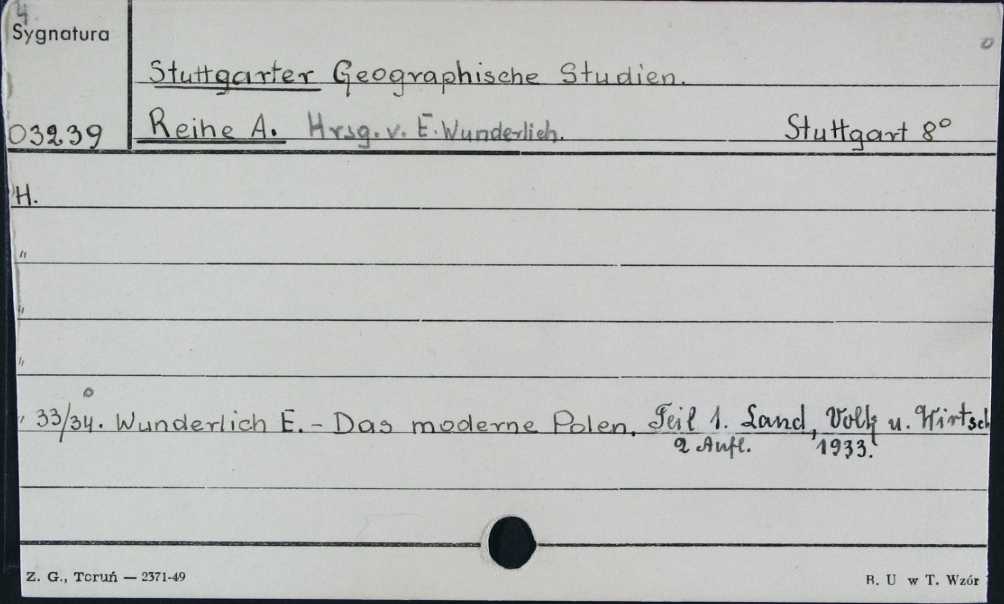 4
Sygnatura
Stuttgarter Geographische Studien.
03239 Reihe A. Hrsg. v. E. Wunderlich. Stuttgart 8°
H.
"
"
"
" 33/34. Wunderlich E. - Das moderne Polen. Teil 1. Land, Volk u. Wirtsch
2 Aufl. 1933.
Z. G., Toruń — 2371-49 B. U w T. Wzór